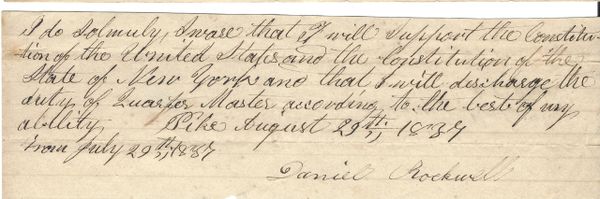 I do Solmuly, Swase that I will Support the Constitu-
tion of the United Stats, and the Constitution of the
State of New York and that I will discharge the
duty of Quarter Master according to the best of my
abllity Pike August 29th, 1837
from July 29th, 1837
Daniel Rockwell